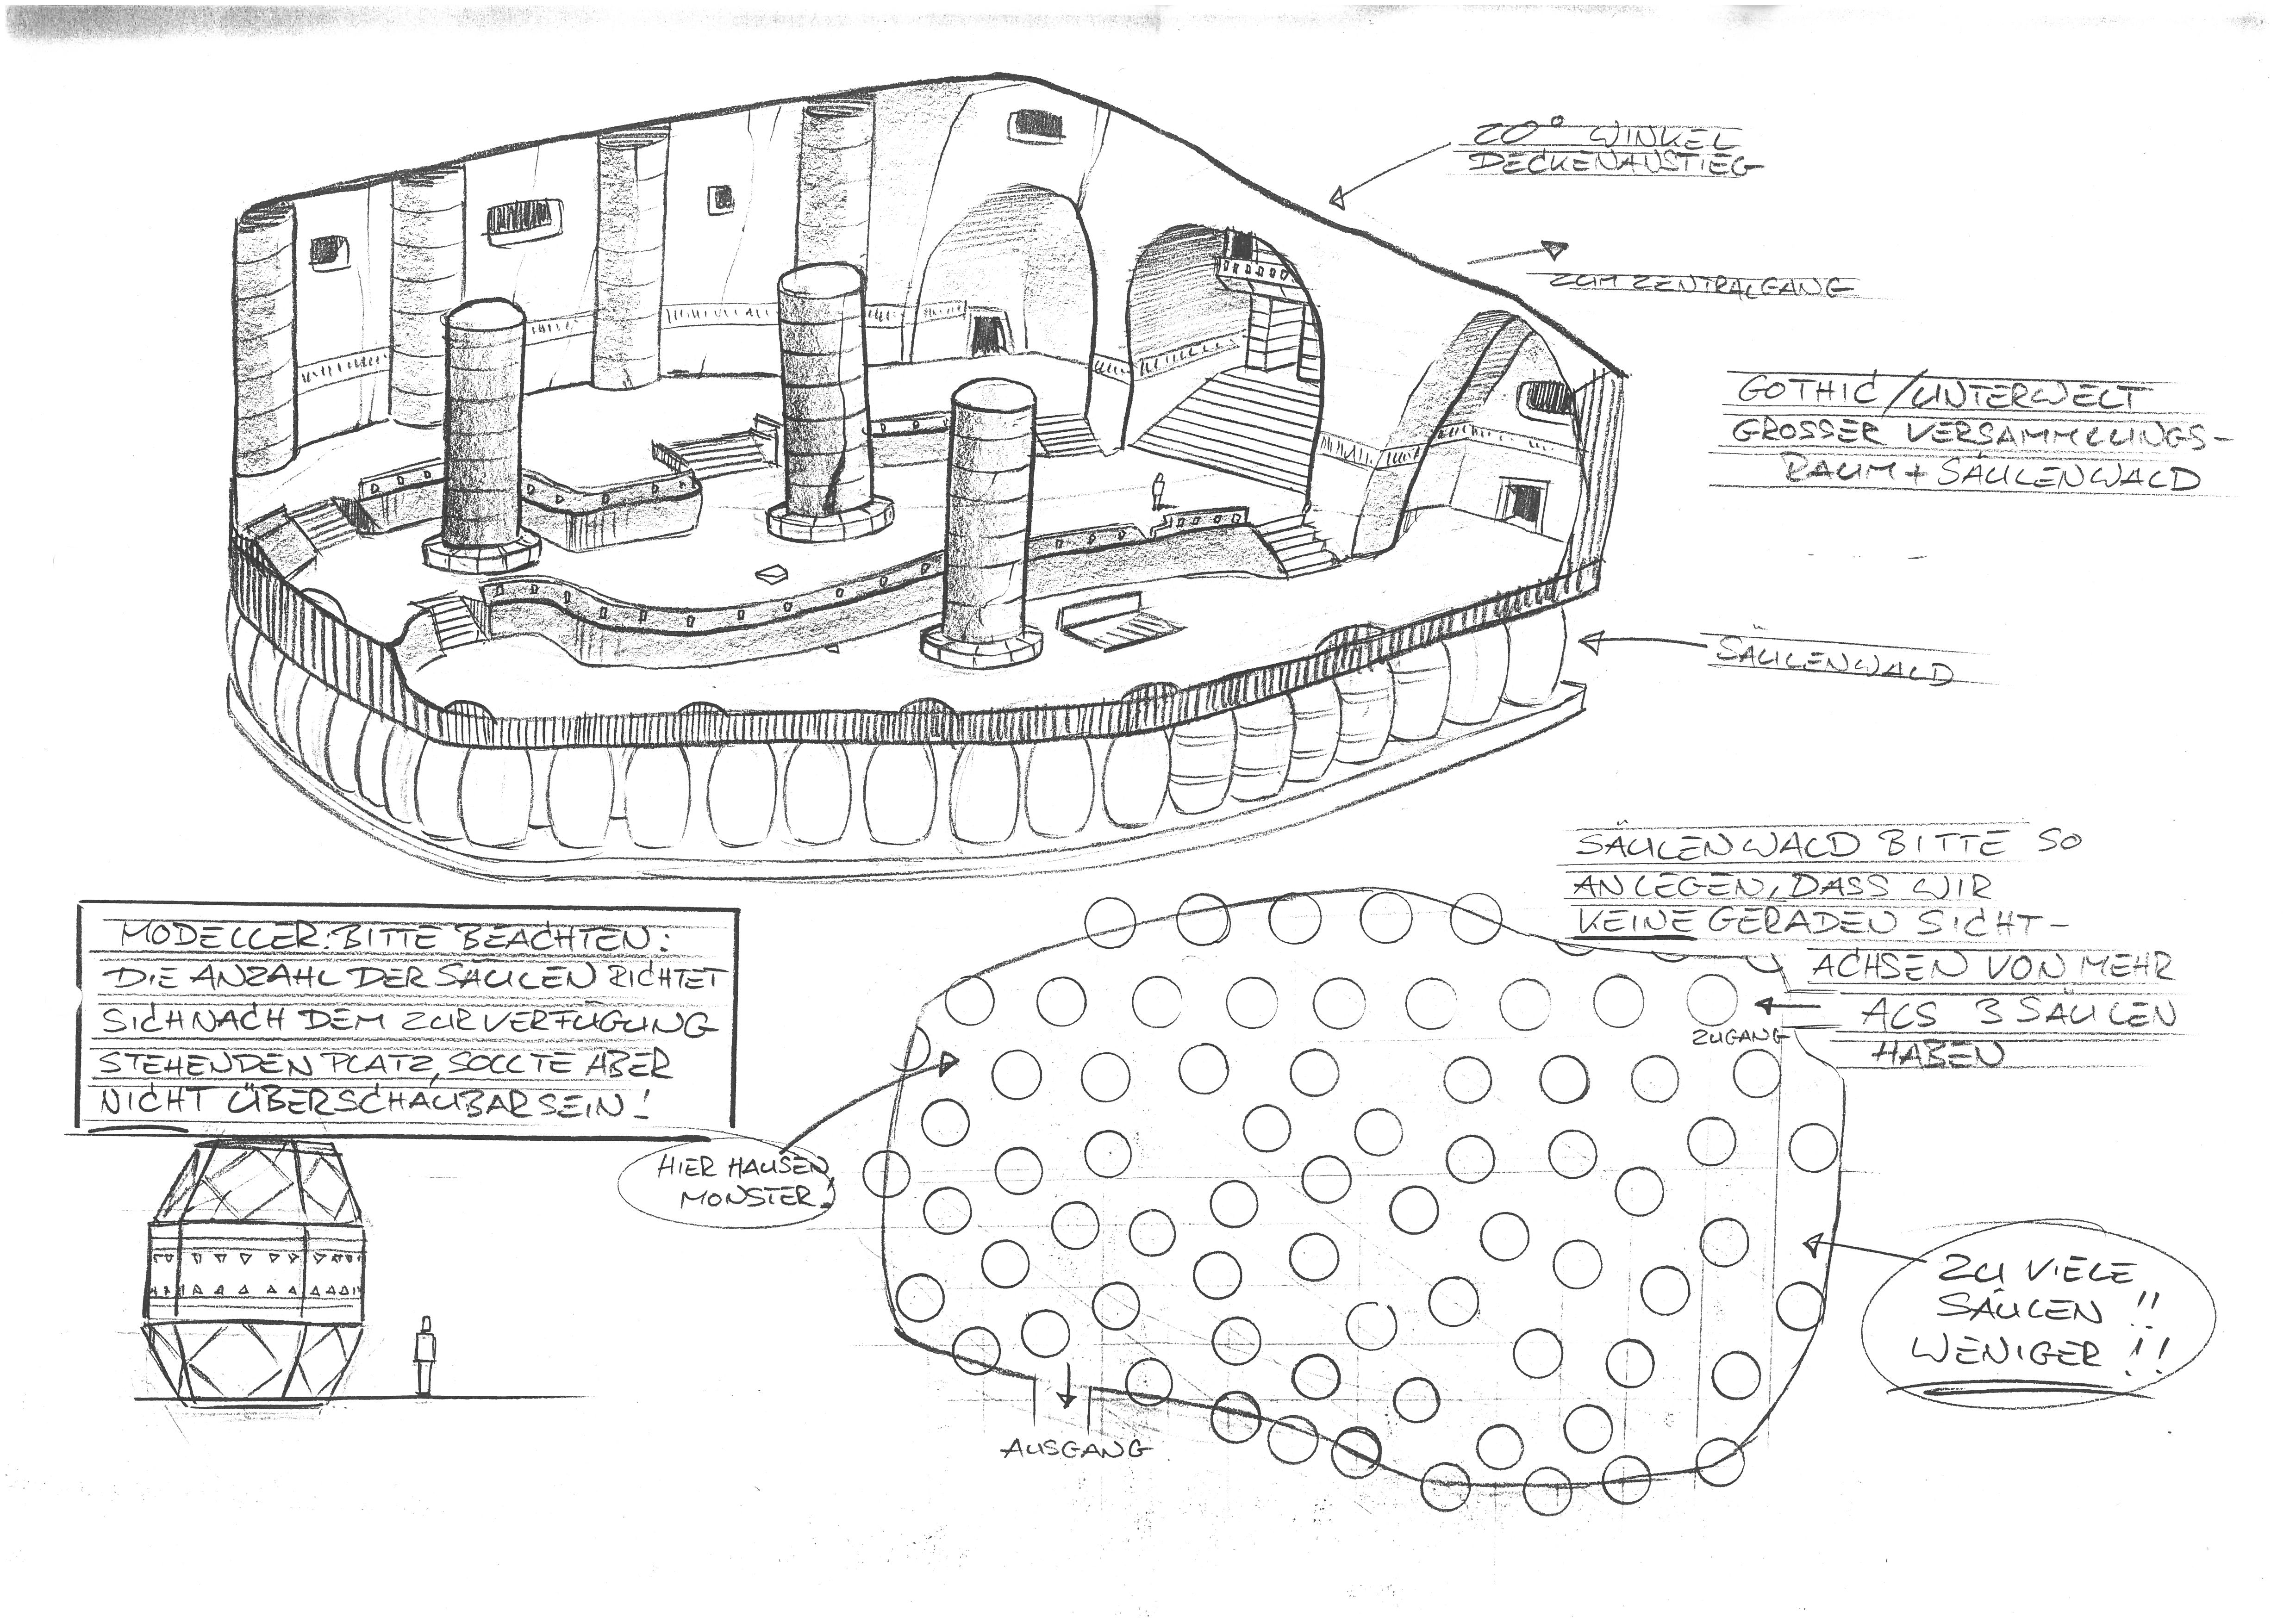 20° WINKEL
DECKENAUSTIEG
ZUM ZENTRALGANG
GOTHIC/UNTERWELT
GROSSER VERSAMMLUNGS-
RAUM + SÄULENWALD
SÄULENWALD
SÄULENWALD BITTE SO
ANLEGEN, DASS WIR
KEINE GERADEN SICHT-
ACHSEN VON MEHR
ALS 3 SÄULEN
HABEN
ZUGANG
MODELLER: BITTE BEACHTEN:
DIE ANZAHL DER SÄULEN RICHTET
SICH NACH DEM ZUR VERFÜGUNG
STEHENDEN PLATZ, SOLLTE ABER
NICHT ÜBERSCHAUBAR SEIN!
HIER HAUSEN
MONSTER!
ZU VIELE
SÄULEN !!
WENIGER !!
AUSGANG